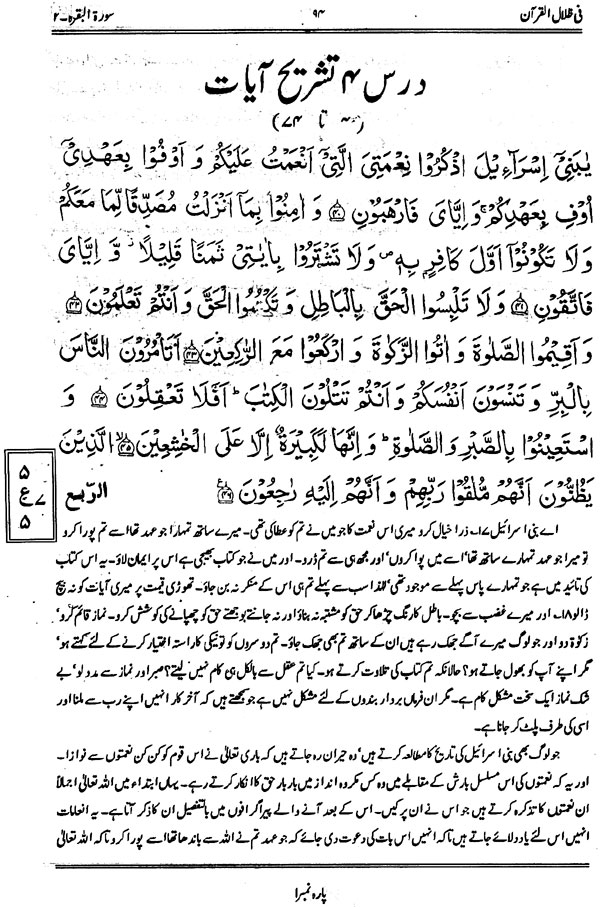 فی ظلال القرآن ۹۴ سورۃ البقرہ-۲
درس ۴ تشریح آیات
(۴۰ تا ۷۴)
یٰبَنِیْۤ اِسْرَآءِیْلَ اذْكُرُوْا نِعْمَتِیَ الَّتِیْۤ اَنْعَمْتُ عَلَیْكُمْ وَ اَوْفُوْا بِعَهْدِیْۤ
اُوْفِ بِعَهْدِكُمْ ۚ وَ اِیَّایَ فَارْهَبُوْنِ ﴿۴۰﴾ وَ اٰمِنُوْا بِمَاۤ اَنْزَلْتُ مُصَدِّقًا لِّمَا مَعَكُمْ
وَ لَا تَكُوْنُوْۤا اَوَّلَ كَافِرٍۭ بِهٖ ۪ وَ لَا تَشْتَرُوْا بِاٰیٰتِیْ ثَمَنًا قَلِیْلًا ؗ وَّ اِیَّایَ
فَاتَّقُوْنِ ﴿۴۱﴾ وَ لَا تَلْبِسُوا الْحَقَّ بِالْبَاطِلِ وَ تَكْتُمُوا الْحَقَّ وَ اَنْتُمْ تَعْلَمُوْنَ ﴿۴۲﴾
وَ اَقِیْمُوا الصَّلٰوةَ وَ اٰتُوا الزَّكٰوةَ وَ ارْكَعُوْا مَعَ الرّٰكِعِیْنَ ﴿۴۳﴾ اَتَاْمُرُوْنَ النَّاسَ
بِالْبِرِّ وَ تَنْسَوْنَ اَنْفُسَكُمْ وَ اَنْتُمْ تَتْلُوْنَ الْكِتٰبَ ؕ اَفَلَا تَعْقِلُوْنَ ﴿۴۴﴾ وَ
اسْتَعِیْنُوْا بِالصَّبْرِ وَ الصَّلٰوةِ ؕ وَ اِنَّهَا لَكَبِیْرَةٌ اِلَّا عَلَی الْخٰشِعِیْنَ ﴿۴۵﴾ الَّذِیْنَ
یَظُنُّوْنَ اَنَّهُمْ مُّلٰقُوْا رَبِّهِمْ وَ اَنَّهُمْ اِلَیْهِ رٰجِعُوْنَ ﴿۴۶﴾ الرّبع
۵
ع ۷
۵
اے بنی اسرائیل ۱۷۔ ذرا خیال کرو میری اس نعمت کا جو میں نے تم کو عطا کی تھی۔ میرے ساتھ تمہارا جو عہد تھا اسے تم پورا کرو
تو میرا جو عہد تمہارے ساتھ تھا' اسے میں پورا کروں' اور مجھ ہی سے تم ڈرو۔ اور میں نے جو کتاب بھیجی ہے اس پر ایمان لاؤ۔ یہ اس کتاب
کی تائید میں ہے جو تمہارے پاس پہلے سے موجود تھی' لہٰذا سب سے پہلے تم ہی اس کے منکر نہ بن جاؤ۔ تھوڑی قیمت پر میری آیات کو نہ بیچ
ڈالو ۱۸۔ اور میرے غضب سے بچو۔ باطل کا رنگ چڑھا کر حق کو مشتبہ نہ بناؤ اور نہ جانتے بوجھتے حق کو چھپانے کی کوشش کرو۔ نماز قائم کرو'
زکوٰۃ دو اور جو لوگ میرے آگے جھک رہے ہیں ان کے ساتھ تم بھی جھک جاؤ۔ تم دوسروں کو تو نیکی کا راستہ اختیار کرنے کے لئے کہتے ہو'
مگر اپنے آپ کو بھول جاتے ہو؟ حالانکہ تم کتاب کی تلاوت کرتے ہو۔ کیا تم عقل سے بالکل ہی کام نہیں لیتے؟ صبر اور نماز سے مدد لو' بے
شک نماز ایک سخت مشکل کام ہے۔ مگر ان فرماں بردار بندوں کے لئے مشکل نہیں ہے جو سمجھتے ہیں کہ آخر کار انہیں اپنے رب سے ملنا اور
اسی کی طرف پلٹ کر جانا ہے۔
جو لوگ بھی بنی اسرائیل کی تاریخ کا مطالعہ کرتے ہیں' وہ حیران رہ جاتے ہیں کہ باری تعالیٰ نے اس قوم کو کن کن نعمتوں سے نوازا۔
اور یہ کہ نعمتوں کی اس مسلسل بارش کے مقابلے میں وہ کس مکروہ انداز میں بار بار حق کا انکار کرتے رہے۔ یہاں ابتداء میں اللہ تعالیٰ اجمالاً
ان نعمتوں کا تذکرہ کرتے ہیں جو اس نے ان پر کیں۔ اس کے بعد آنے والے پیراگرافوں میں بالتفصیل ان کا ذکر آتا ہے۔ یہ انعامات
انہیں اس لئے یاد دلائے جاتے ہیں تاکہ انہیں اس بات کی دعوت دی جائے کہ جو عہد تم نے اللہ سے باندھا تھا اسے پورا کرو تاکہ اللہ تعالیٰ
پارہ نمبر ۱